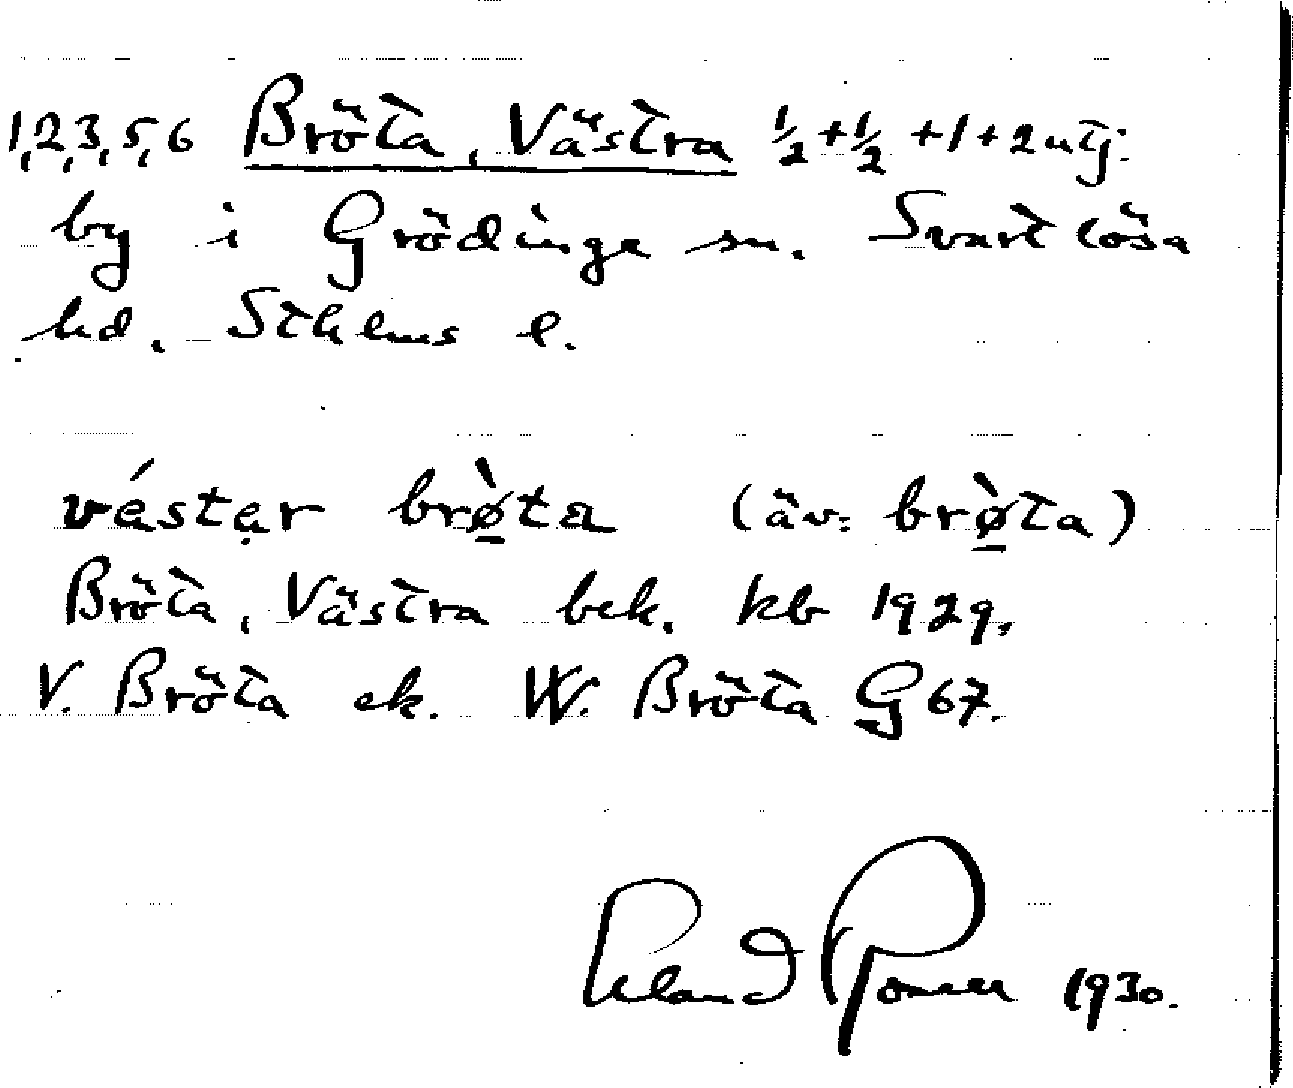 1,2,3,5,6 Bröta, Västra ½+½ +1+2 utj.
by i Grödinge sn. Svartlösa
hd. Sthlms l.
véstẹr brø̱̀ta (äv. brø̱̀ta)
Bröta, Västra bek. kb 1929.
V. Bröta ek. W. Bröta G 67.
1930.